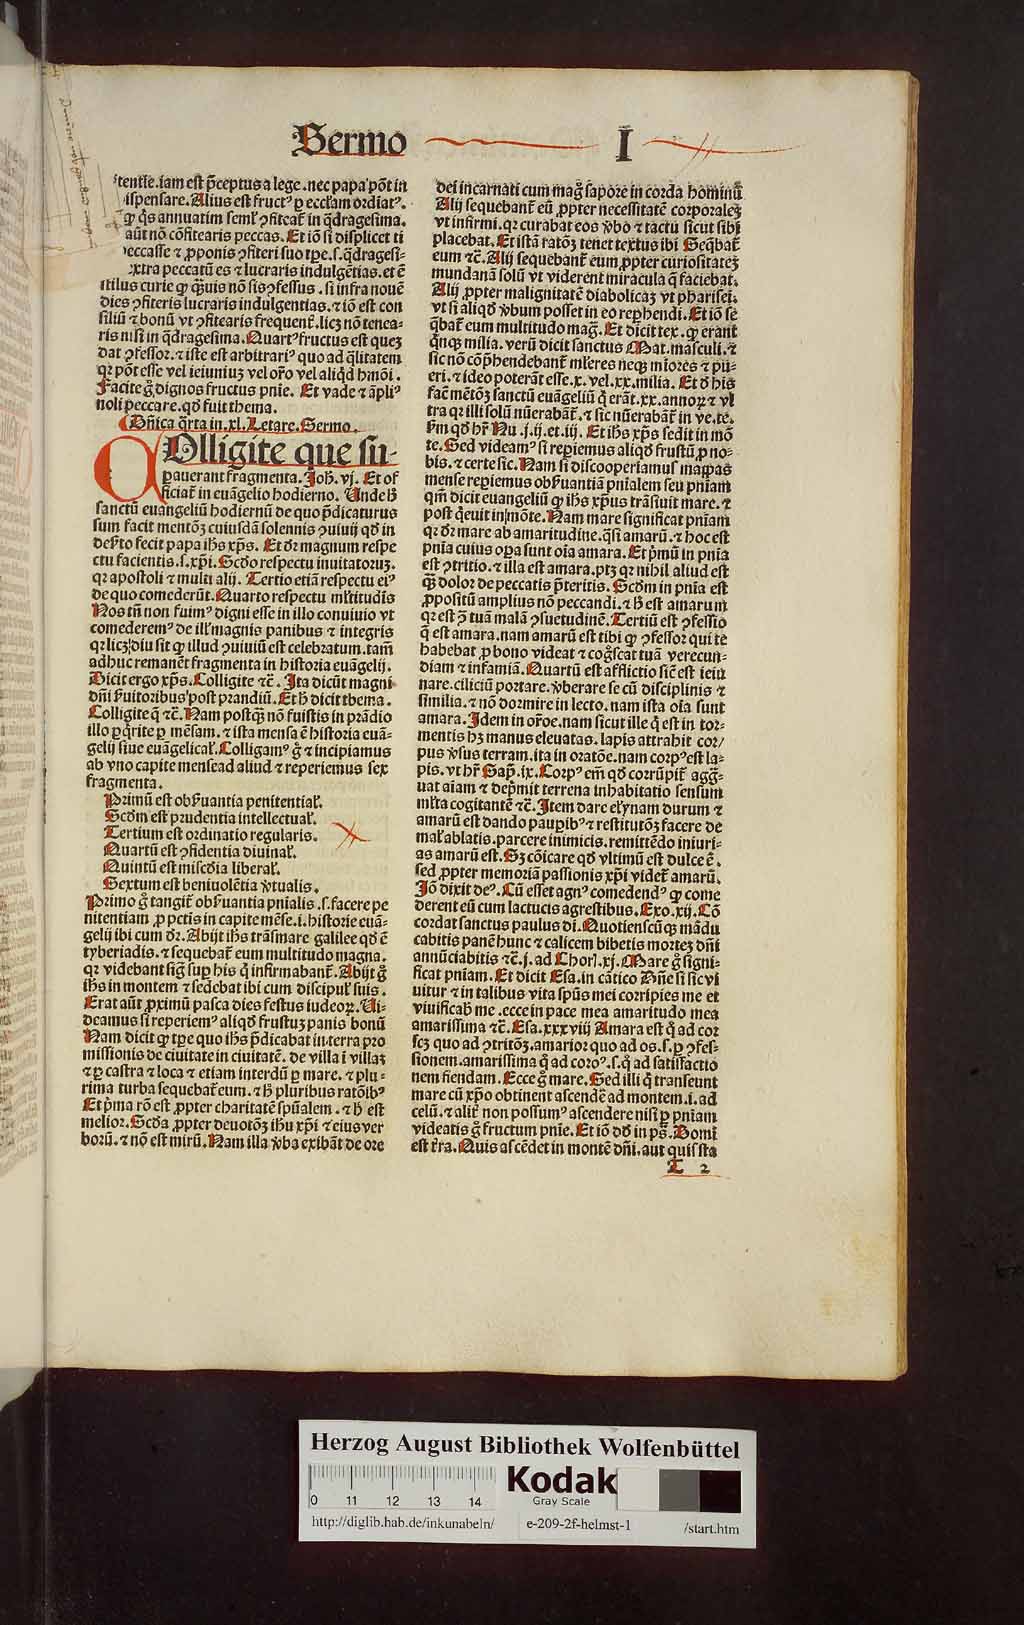 Sermo I
tentie.iam est p̄ceptus a lege.nec papa pōt in
ispensare.Alius est fructꝰ ꝑ eccl̄am ordiatꝰ.
ꝙ q̇s annuatim semꝉ ꝯfiteat̄ in q̄dragesima.
aūt nō cōfitearis peccas.Et iō si displicet ti
eccasse ⁊ ꝓponis ꝯfiteri suo tꝑe.s.q̄dragesi-
xtra peccatū es ⁊ lucraris indulgētias.et ē
stilus curie ꝙ q̄uis nō sis ꝯfessus.si infra nouē
dies ꝯfiteris lucraris indulgentias.⁊ iō est con
siliū ⁊ bonū vt ꝯfitearis frequent̄.licꝫ nō tenea-
ris nisi in q̄dragesima.Quartꝰ fructus est quez
dat ꝯfessor.⁊ iste est arbitrariꝰ quo ad q̄litatem
qꝛ pōt esse vel ieiuniuz vel or̄o vel aliqd̄ hmōi.
Facite g̊ dignos fructus pnīe. Et vade ⁊ āpliꝰ
noli peccare.qd̄ fuit thema.
Dn̄ica q̄rta in.xl.Letare.Sermo.
Olligite que su-
pauerant fragmenta.Joh̄.vj.Et of
ficiat̄ in euāgelio hodierno. Unde h̄
sanctū euangeliū hodiernū de quo p̄dicaturus
sum facit mentōꝫ cuiusdā solennis ꝯuiuij qd̄ in
deẜto fecit papa ih̄s xp̄s. Et dr̄ magnum respe
ctu facientis.s.xp̄i.Scd̄o respectu inuitatoruz.
qꝛ apostoli ⁊ multi alij.Tertio etiā respectu eiꝰ
de quo comederūt.Quarto respectu ml̄titudis
Nos tn̄ non fuimꝰ digni esse in illo conuiuio vt
comederemꝰ de illꝭ magnis panibus ⁊ integris
qꝛ licꝫ diu sit ꝙ illud ꝯuiuiū est celebratum.tam̄
adhuc remanēt fragmenta in historia euāgelij.
Dicit ergo xp̄s.Colligite ⁊c̄.Ita dicūt magni
dn̄i ẜuitoribus post prandiū.Et h̄ dicit thema.
Colligite q̄ ⁊c̄.Nam postq̄ꝫ nō fuistis in prādio
illo ꝑq̄rite ꝑ mēsam.⁊ ista mensa ē historia euā-
gelij siue euāgelicaꝉ.Colligamꝰ g̊ ⁊ incipiamus
ab vno capite mense ad aliud ⁊ reperiemus sex
fragmenta.
Primū est obẜuantia penitentiaꝉ.
Scd̄m est prudentia intellectuaꝉ.
Tertium est ordinatio regularis.
Quartū est ꝯfidentia diuinaꝉ.
Quintū est misc̄dia liberaꝉ.
Sextum est beniuolētia v̄tualis.
Primo g̊ tangit̄ obẜuantia pn̄ialis.s.facere pe
nitentiam ꝓ pctis in capite mēse.i.historie euā-
gelij ibi cum dr̄.Abijt ih̄s trās mare galilee qd̄ ē
tyberiadis.⁊ sequebat̄ eum multitudo magna.
qꝛ videbant sig̊ suꝑ his q̇ infirmabant̄.Abijt g̊
ih̄s in montem ⁊ sedebat ibi cum discipuꝉ suis.
Erat aūt proximū pasca dies festus iudeoꝝ.Ui-
deamus si reperiemꝰ aliqd̄ frustuz panis bonū
Nam dicit ꝙ tꝑe quo ih̄s p̄dicabat in terra pro
missionis de ciuitate in ciuitatē. de villa ī villaꝫ
⁊ ꝑ castra ⁊ loca ⁊ etiam interdū ꝑ mare. ⁊ plu-
rima turba sequebat̄ eum.⁊ h̄ pluribus ratōibꝰ
Et p̄ma rō est ꝓpter charitatē spūalem.⁊ h̄ est
melior.Scd̄a ꝓpter deuotōꝫ ih̄u xp̄i ⁊ eius ver
borū.⁊ nō est mirū.Nam illa v̄ba exibāt de ore
dei incarnati cum mag̊ sapore in corda hominū
Alij sequebant̄ eū ꝓpter necessitatē corporaleꝫ
vt infirmi.qꝛ curabat eos v̄bo ⁊ tactu sicut sibi
placebat.Et istā ratōꝫ tenet textus ibi Seq̄bat̄
eum ⁊c̄.Alij sequebant̄ eum ꝓpter curiositateꝫ
mundanā solū vt viderent miracula q̄ faciebat.
Alij ꝓpter malignitatē diabolicaꝫ vt pharisei.
vt si aliqd̄ v̄bum posset in eo rep̄hendi.Et iō se
q̄bat̄ eum multitudo mag̊.Et dicit tex.ꝙ erant
q̇nqꝫ milia.verū dicit sanctus Mat.masculi.⁊
sic nō cōp̄hendebant̄ ml̄ieres neqꝫ miores ⁊ pu-
eri.⁊ ideo poterāt esse.x.vel.xx.milia. Et d̄ his
fac̄ mētōꝫ sanctū euāgeliū q̇ erāt.xx.annoꝝ ⁊ vl
tra qꝛ illi solū nūerabāt̄.⁊ sic nūerabāt̄ in ve.te.
ẜm qd̄ hr̄ Nu.j.ij.et.iij. Et ih̄s xp̄s sedit in mō
te.Sed videamꝰ si reꝑiemus aliqd̄ frustū ꝓ no-
bis.⁊ certe sic.Nam si discooperiamus mappas
mense reꝑiemus obẜuantiā pn̄ialem seu pn̄iam
qm̄ dicit euangeliū ꝙ ih̄s xp̄us trāsiuit mare.⁊
post q̇euit in mōte.Nam mare significat pn̄iam
qꝛ dr̄ mare ab amaritudine.q̄si amarū.⁊ hoc est
pn̄ia cuius oꝑa sunt oīa amara. Et p̄mū in pn̄ia
est ꝯtritio.⁊ illa est amara.ptꝫ qꝛ nibil aliud est
q̄ꝫ dolor de peccatis p̄teritis. Scd̄m in pn̄ia est
ꝓpositū amplius nō peccandi.⁊ h̄ est amarum
qꝛ est ꝯ̄ tuā malā ꝯsuetudinē.Tertiū est ꝯfessio
q̄ est amara.nam amarū est tibi ꝙ ꝯfessor qui te
habebat ꝓ bono videat ⁊ cog̊scat tuā verecun-
diam ⁊ infamiā.Quartū est afflictio sic̄ est ieiu
nare.ciliciū portare.v̄berare se cū disciplinis ⁊
similia.⁊ nō dormire in lecto.nam ista oīa sunt
amara. Idem in or̄oe.nam sicut ille q̇ est in tor-
mentis hꝫ manus eleuatas.lapis attrahit cor/
pus v̄sus terram.ita in oratōe.nam corpꝰ est la-
pis.vt hr̄ Sap̄.ix.Corpꝰ em̄ qd̄ corrūpit̄ agg̊-
uat aīam ⁊ dep̄mit terrena inhabitatio sensum
ml̄ta cogitantē ⁊c̄. Item dare el̄ynam durum ⁊
amarū est.dando pauꝑibꝰ ⁊ restitutōꝫ facere de
maꝉ ablatis.parcere inimicis.remittēdo iniuri-
as amarū est.Sꝫ cōicare qd̄ vltimū est dulce ē.
sed ꝓpter memoriā passionis xp̄i videt̄ amarū.
Iō dixit deꝰ. Cū esset agnꝰ comedendꝰ ꝙ come
derent eū cum lactucis agrestibus.Exo.xij.Cō
cordat sanctus paulus dī.Quotienscūqꝫ mādu
cabitis panē hunc ⁊ calicem bibetis morteꝫ dn̄i
annūciabitis ⁊c̄.j.ad Chorꝉ.xj.Mare g̊ signi-
ficat pn̄iam. Et dicit Esa.in cātico Dn̄e si sic vi
uitur ⁊ in talibus vita spūs mei corripies me et
viuificab̄ me.ecce in pace mea amaritudo mea
amarissima ⁊c̄.Esa.xxxviij Amara est q̄ ad cor
scꝫ quo ad ꝯtritōꝫ.amarior quo ad os.s.ꝑ ꝯfes-
sionem.amarissima q̊ ad corꝑꝰ.s.q̊ ad satisfactio
nem fiendam.Ecce g̊ mare.Sed illi q̇ transeunt
mare cū xp̄o obtinent ascendē ad montem.i.ad
celū.⁊ alit̄ non possumꝰ ascendere nisi ꝑ pn̄iam
videatis g̊ fructum pnīe.Et iō dd̄ in ps̄.Domī
est t̄ra.Quis ascēdet in montē dn̄i.aut quis sta
T 2
Herzog August Bibliothek Wolfenbüttel
0 11 12 13 14
Kodak
Gray Scale
http://diglib.hab.de/inkunabeln/ e-209-2f-helmst-1 /start.htm